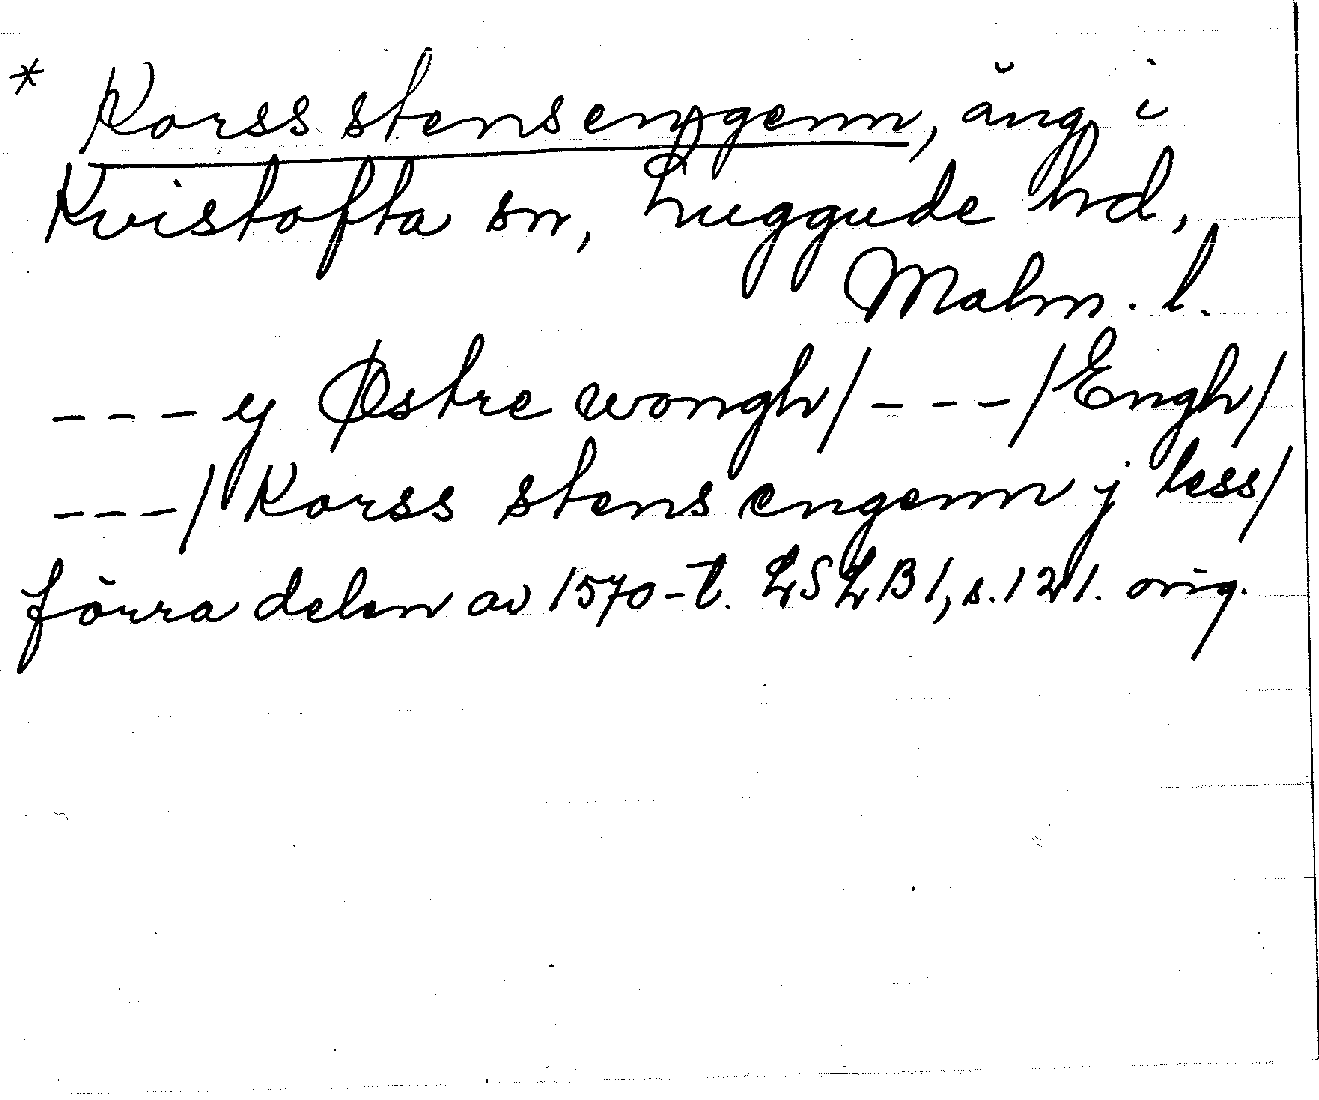 * Korss stensenngenn, äng i
Kvistofta sn, Luggude hd,
Malm. l.
--- y Østre wongh/---/Engh/
---/Korss stens engenn j less/
förra delen av 1570-t. LSLB1, s. 121. orig.